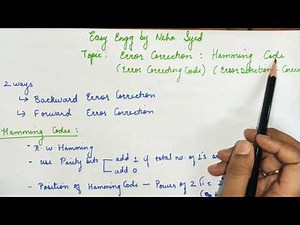 Easy Engg by Neha Syed
Topic: Error Correction : Hamming Code
(Error Correcting Code) (Error Detection &
2 ways
↳ Backward Error Correction
↳ Forward Error Correction
Hamming Codes :
- R.W. Hamming
- use Parity bits → add 1 if total no. of 1's
add 0
- Position of Hamming Code – Power of 2 (i.e 2